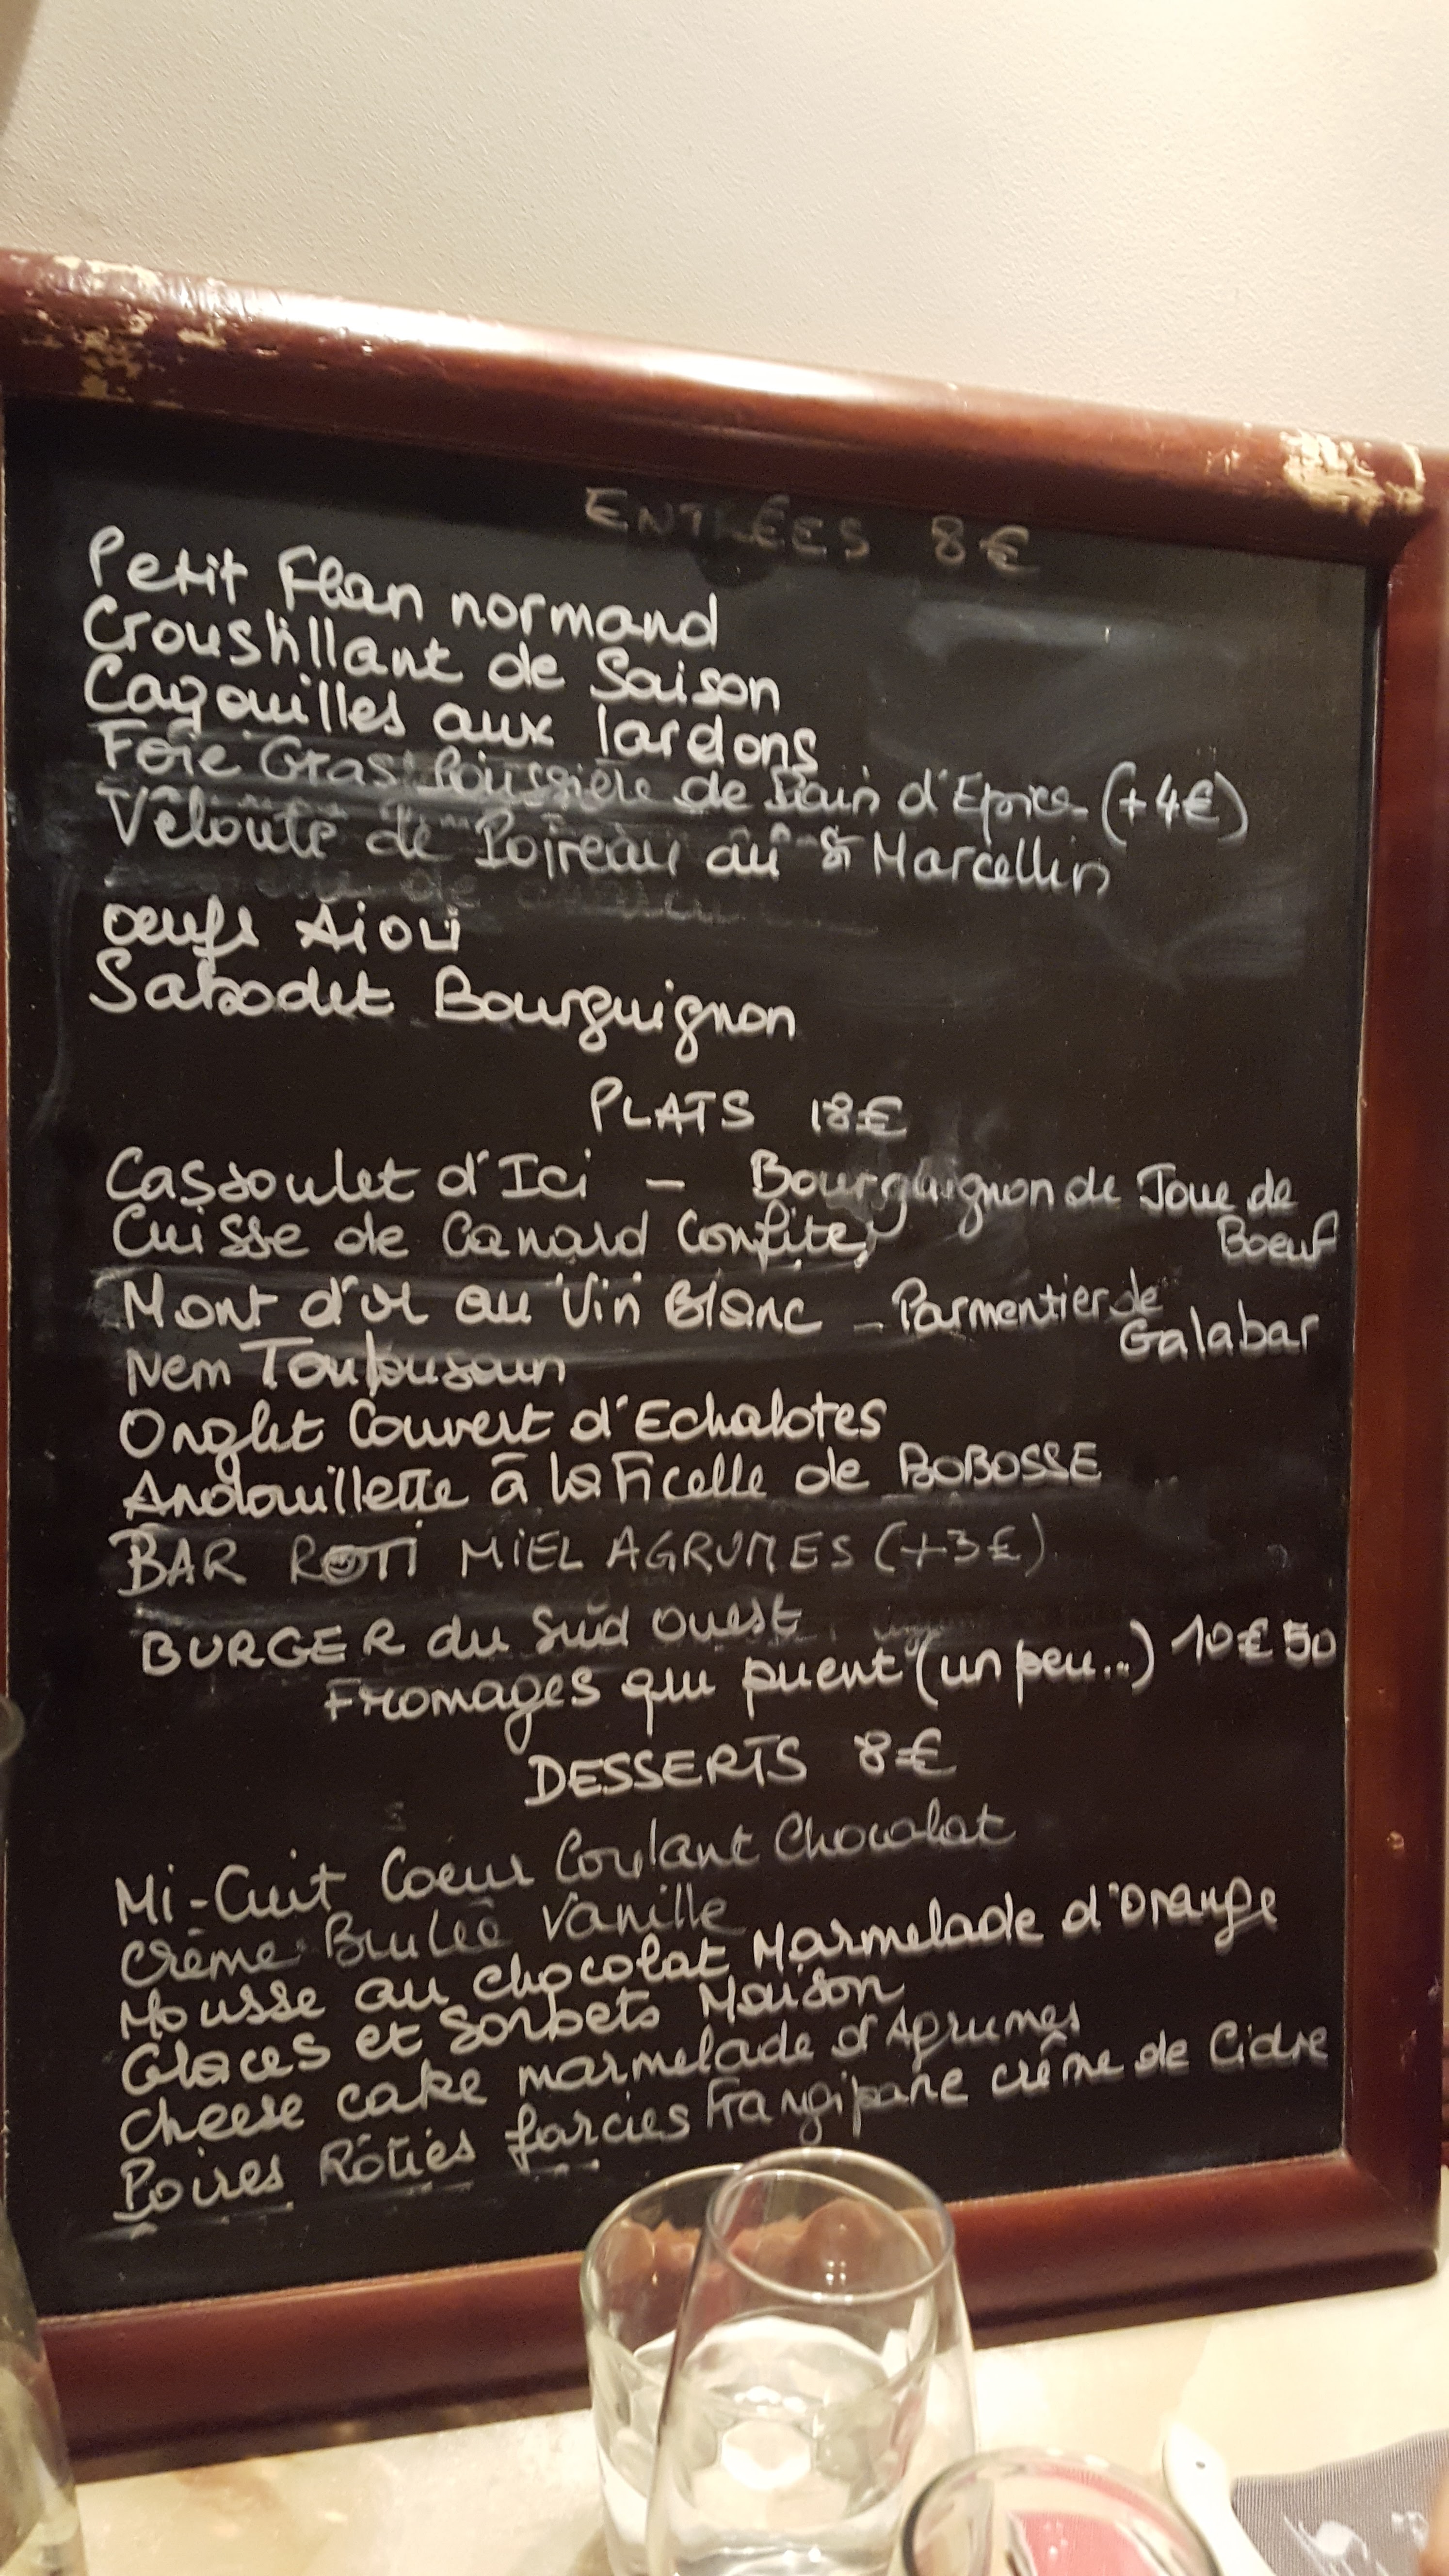 ENTRÉES 8€
Petit Flan normand
Croustillant de Saison
Cagouilles aux lardons
Foie Gras Poussière de Pain d'Epice (+4€)
Vélouté de Poireau au St Marcellin
Oeufs Aioli
Sabodet Bourguignon
PLATS 18€
Cassoulet d'Ici - Bourguignon de Joue de
Boeuf
Cuisse de Canard Confite
Mont d'or au Vin Blanc - Parmentier de
Galabar
Nem Toulousain
Onglet Couvert d'Echalotes
Andouillette à la Ficelle de BOBOSSE
BAR ROTI MIEL AGRUMES (+3€)
BURGER du Sud Ouest
Fromages qui puent (un peu...) 10€50
DESSERTS 8€
Mi-Cuit Coeur Coulant Chocolat
Crème Brulée Vanille
Mousse au chocolat Marmelade d'Orange
Glaces et Sorbets Maison
Cheese cake marmelade d'Agrumes
Poires Rôties farcies Frangipane crême de Cidre